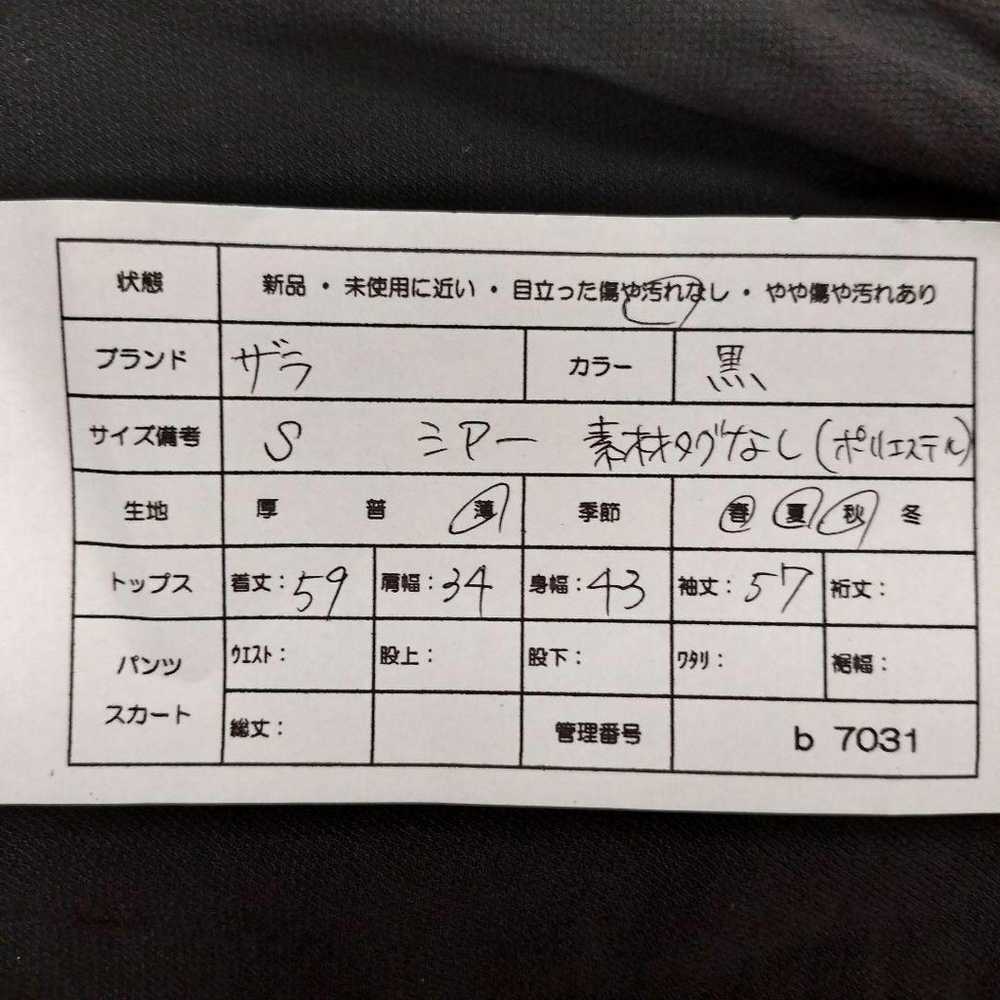 状態 新品・未使用に近い・目立った傷や汚れなし・やや傷や汚れあり
ブランド ザラ カラー 黒
サイズ備考 S シアー 素材タグなし(ポリエステル)
生地 厚 普 薄 季節 春 夏 秋 冬
トップス 着丈:59 肩幅:34 身幅:43 袖丈:57 裄丈:
パンツ スカート ウエスト: 股上: 股下: ワタリ: 裾幅:
総丈: 管理番号 b 7031